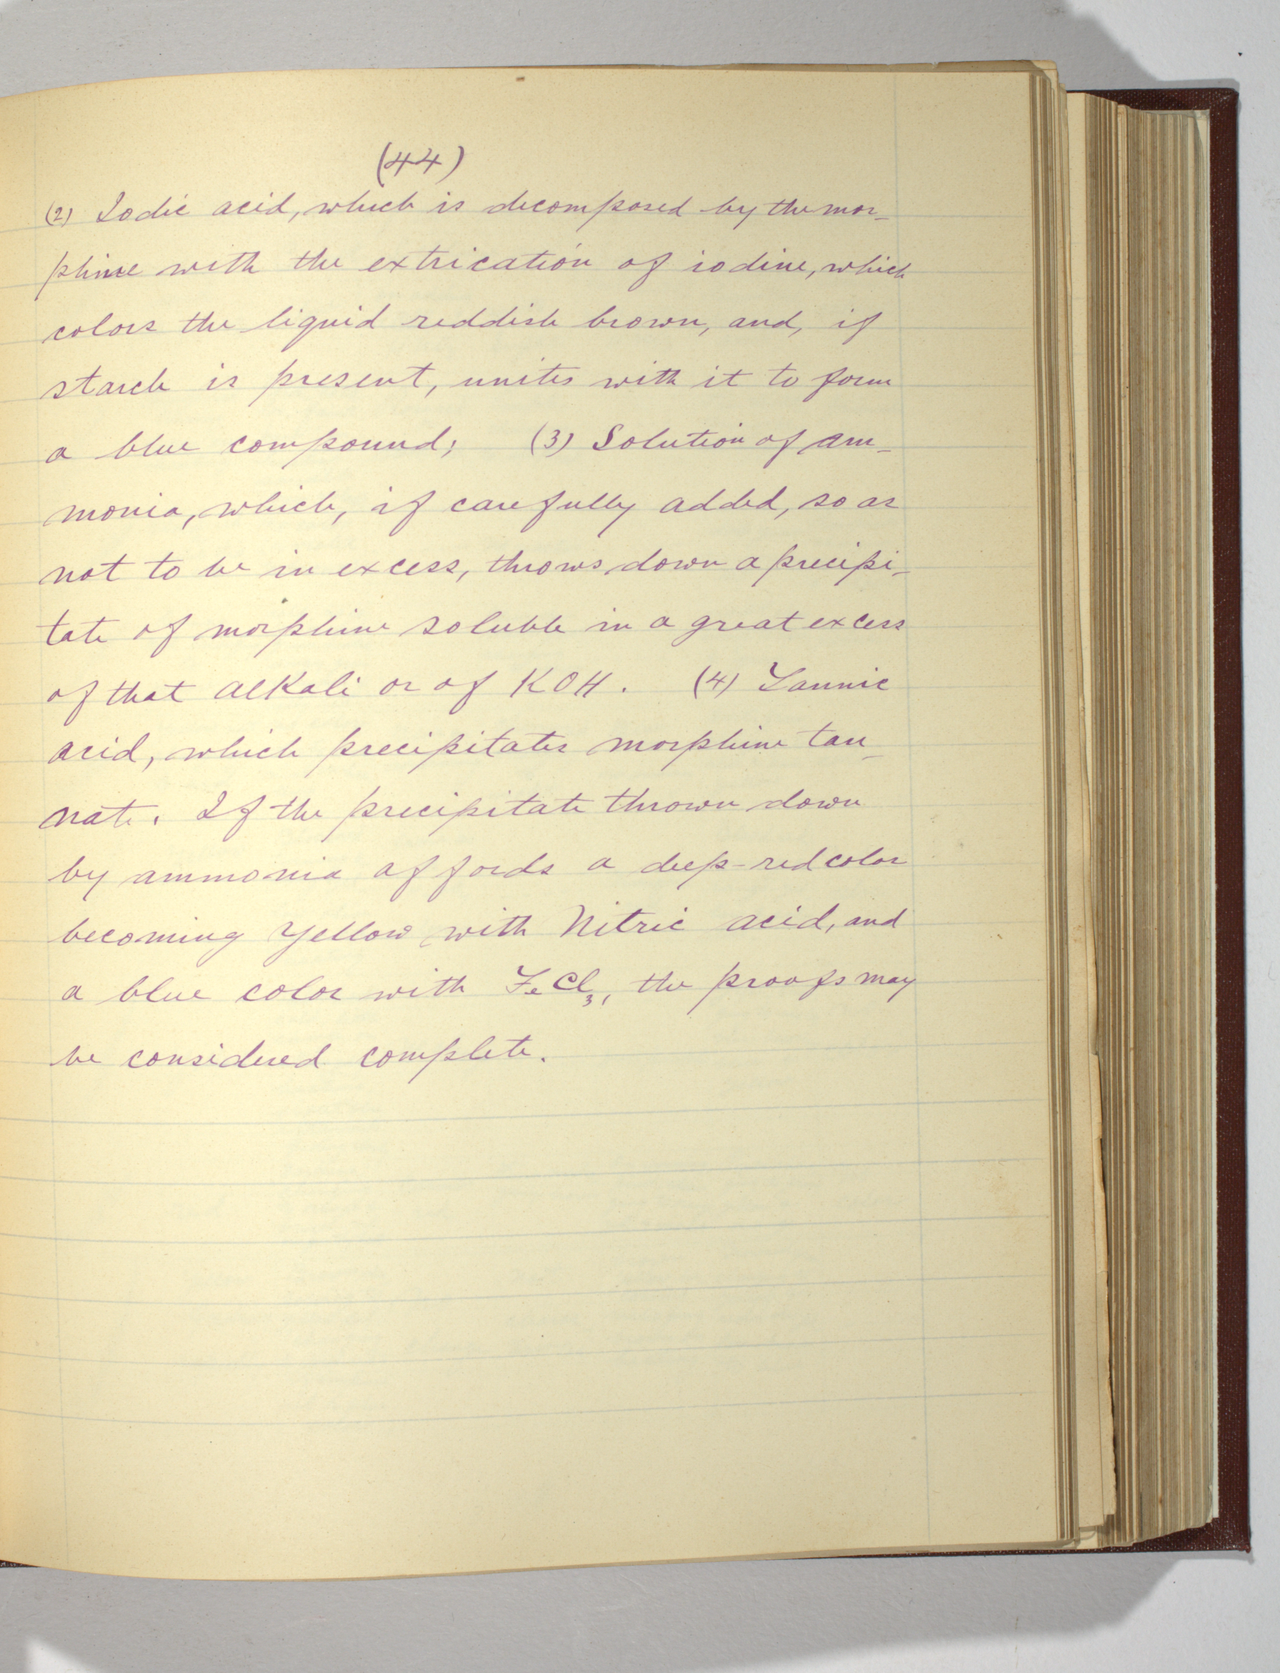 (44)
(2) Iodic acid, which is decomposed by the mor-
phine with the extrication of iodine, which
colors the liquid reddish brown, and, if
starch is present, unites with it to form
a blue compound; (3) Solution of am-
monia, which, if carefully added, so as
not to be in excess, throws down a precipi-
tate of morphine soluble in a great excess
of that alkali or of KOH. (4) Tannic
acid, which precipitates morphine tan-
nate. If the precipitate thrown down
by ammonia affords a deep-red color
becoming yellow with Nitric acid, and
a blue color with FeCl₃, the proofs may
be considered complete.